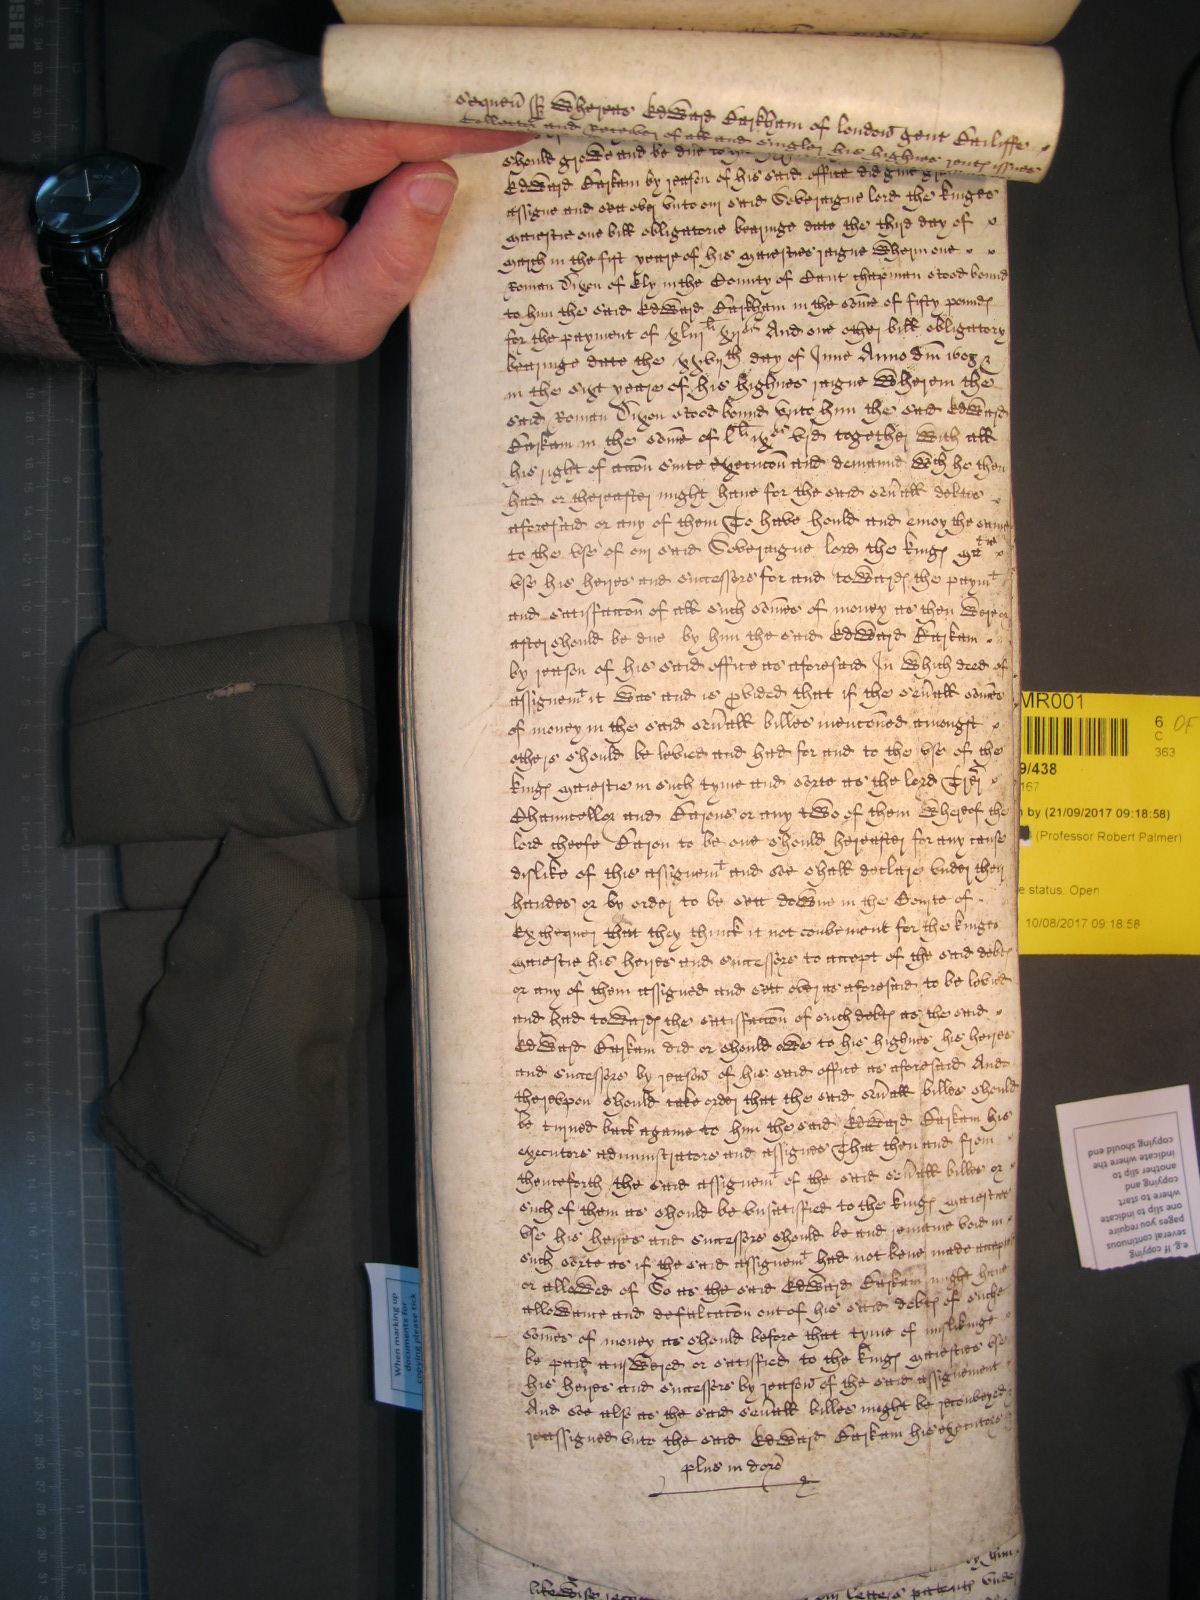 sequen̄ s̄s̄ Whereas Edward Carkham of london gent Bailiffe
Collector and Receivor of all and singler his highnes rentes issues
should growe and be due to
Edward Carkam by reason of his said office did give
assigne and sett over vnto our said Soveraigne lord the kinges
maiestie one bill obligatorie bearinge date the third day of
march in the first yeare of his maiesties raigne wherin one
Roman Dixon of Ely in the County of Cant chapman stood bound
to him the said Edward Carkham in the some of fifty poundes
for the payment of And one other bill obligatory
bearinge date the xxvijth day of June Anno dm̄ 1608
in the sixt yeare of his highnes raigne Wherein the
said Roman Dixon stood bound vnto him the said Edward
Carkam in the some of lli ixs vjd together with all
his right of accon suite execucon and demaund wch he then
had or thereafter might have for the said sev̄all debtes
aforesaid or any of them To have hould and enioy the same
to the vse of our said Soveraigne lord the kinges matie
vse his heyres and successors for and towardes the paymt
and satisfaccon of all such somes of money as then were or
after should be due by him the said Edward Carkam
by reason of his said office as aforesaid In which deed of
assignemt it was and is pvided that if the sev̄all somes
of money in the said sev̄all billes menconed amongst
others should be levied and had for and to the vse of the
kinges maiestie in such tyme and sorte as the lord Trer
Chauncellor and Barons or any two of them whereof the
lord cheefe Baron to be one should hereafter for any cause
dislike of this assignemt and soe shall declare vnder their
handes or by order to be sett downe in the Courte of
Exchequer that they thinck it not convenient for the kinges
maiestie his heyres and successors to accept of the said debtes
or any of them assigned and sett over as aforesaid to be levied
and had towardes the satisfaccon of such debtes as the said
Edward Carkam did or should owe to his highnes his heyres
and successors by reason of his said office as aforesaid And
therevpon should take order that the said sev̄all billes should
be turned back againe to him the said Edward Carkam his
executors administrators and assignes That then and from
thenceforth the said assignemt of the said sev̄all billes or
such of them as should be vnsatisfied to the kinges maiesties
vse his heyres and successors should be and remaine void in
such sorte as if the said assignemt had not bene made accepted
or allowed of So as the said Edward Carkam might have
allowance and defalcacon out of his said debtes of suche
somes of money as should before that tyme of mislikinge
be paid answered or satisfied to the kinges maiesties vse
his heyres and successors by reason of the said assignement
And soe also as the said sev̄all billes might be reconveyed
reassigned vnto the said Edward Carkam his executors
plus in dors̄
by him
likewise letters patents vnder
MR001
6 OF
C
363
9/438
167
n by (21/09/2017 09:18:58)
(Professor Robert Palmer)
e status: Open
10/08/2017 09:18:58
e.g. If copying
several continuous
pages you require
one slip to indicate
where to start
copying and
another slip to
indicate where the
copying should end
When marking up
documents for
copying please tick